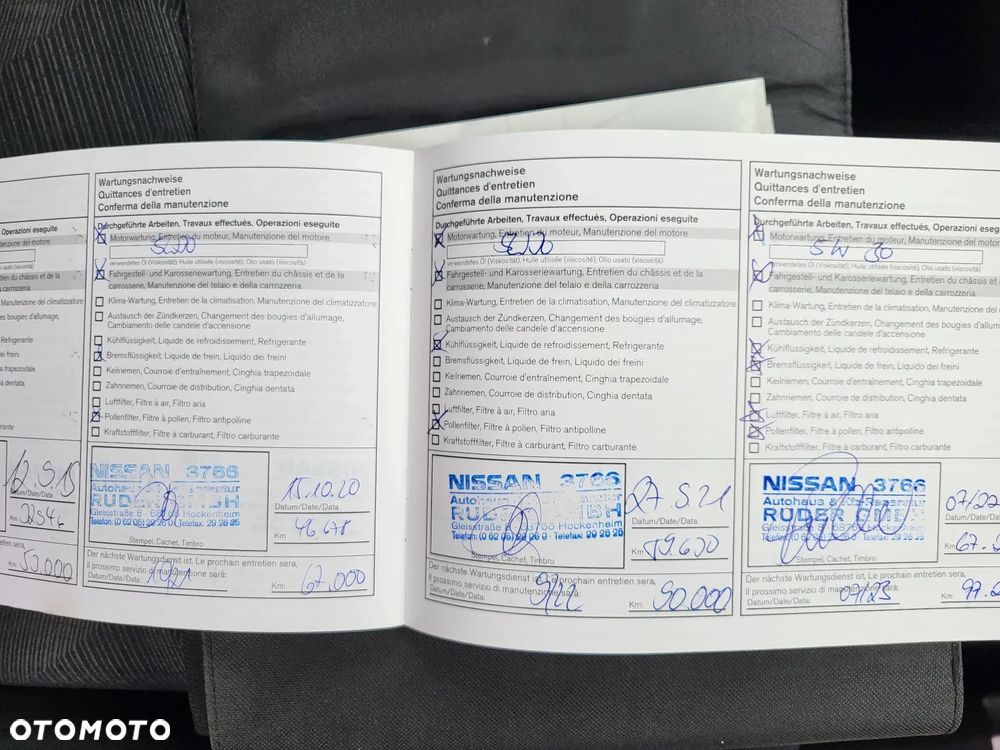 Operazioni eseguite
Manutenzione del motore
Olio usato (viscosità)
Entretien du châssis et de la
e della carrozzeria
Manutenzione del climatizzatore
des bougies d'allumage,
Refrigerante
dei freini
trapezoidale
dentata
12.5.19
Datum/Date/Data
Km:
50.000
Wartungsnachweise
Quittances d'entretien
Conferma della manutenzione
Durchgeführte Arbeiten, Travaux effectués, Operazioni eseguite
Motorwartung, Entretien du moteur, Manutenzione del motore
verwendetes Öl (Viskosität), Huile utilisée (viscosité), Olio usato (viscosità)
Fahrgestell- und Karosseriewartung, Entretien du châssis et de la
carrosserie, Manutenzione del telaio e della carrozzeria
Klima-Wartung, Entretien de la climatisation, Manutenzione del climatizzatore
Austausch der Zündkerzen, Changement des bougies d'allumage,
Cambiamento delle candele d'accensione
Kühlflüssigkeit, Liquide de refroidissement, Refrigerante
Bremsflüssigkeit, Liquide de frein, Liquido dei freini
Keilriemen, Courroie d'entraînement, Cinghia trapezoidale
Zahnriemen, Courroie de distribution, Cinghia dentata
Luftfilter, Filtre à air, Filtro aria
Pollenfilter, Filtre à pollen, Filtro antipolline
Kraftstofffilter, Filtre à carburant, Filtro carburante
NISSAN 3766
Autohaus & Kfz-Reparatur
RUDER GMBH
Telefon: (0 62 05) 29 26 0 Telefax: 29 26 26
Stempel, Cachet, Timbro
15.10.20
Datum/Date/Data
Km: 46.678
Der nächste Wartungsdienst ist, Le prochain entretien sera,
Il prossimo servizio di manutenzione sarà:
Datum/Date/Data: 10/21 Km: 67.000
Wartungsnachweise
Quittances d'entretien
Conferma della manutenzione
Durchgeführte Arbeiten, Travaux effectués, Operazioni eseguite
Motorwartung, Entretien du moteur, Manutenzione del motore
verwendetes Öl (Viskosität), Huile utilisée (viscosité), Olio usato (viscosità)
Fahrgestell- und Karosseriewartung, Entretien du châssis et de la
carrosserie, Manutenzione del telaio e della carrozzeria
Klima-Wartung, Entretien de la climatisation, Manutenzione del climatizzatore
Austausch der Zündkerzen, Changement des bougies d'allumage,
Cambiamento delle candele d'accensione
Kühlflüssigkeit, Liquide de refroidissement, Refrigerante
Bremsflüssigkeit, Liquide de frein, Liquido dei freini
Keilriemen, Courroie d'entraînement, Cinghia trapezoidale
Zahnriemen, Courroie de distribution, Cinghia dentata
Luftfilter, Filtre à air, Filtro aria
Pollenfilter, Filtre à pollen, Filtro antipolline
Kraftstofffilter, Filtre à carburant, Filtro carburante
NISSAN 3766
Autohaus & Kfz-Reparatur
RUDER GMBH
Gleisstraße 8 · 68766 Hockenheim
Telefon: (0 62 05) 29 26 0 · Telefax: 29 26 26
Stempel, Cachet, Timbro
27.5.21
Datum/Date/Data
Km:
Der nächste Wartungsdienst ist, Le prochain entretien sera,
Il prossimo servizio di manutenzione sarà:
Datum/Date/Data: 9/22 Km: 90.000
Wartungsnachweise
Quittances d'entretien
Conferma della manutenzione
Durchgeführte Arbeiten, Travaux effectués, Operazioni
Motorwartung, Entretien du moteur, Manutenzione del
5W 30
verwendetes Öl (Viskosität), Huile utilisée (viscosité), Olio usato (viscosità)
Fahrgestell- und Karosseriewartung, Entretien du
carrosserie, Manutenzione del telaio e della carrozzeria
Klima-Wartung, Entretien de la climatisation, Manutenzione
Austausch der Zündkerzen, Changement des bougies
Cambiamento delle candele d'accensione
Kühlflüssigkeit, Liquide de refroidissement, Refrigerante
Bremsflüssigkeit, Liquide de frein, Liquido dei freini
Keilriemen, Courroie d'entraînement, Cinghia trapezoidale
Zahnriemen, Courroie de distribution, Cinghia dentata
Luftfilter, Filtre à air, Filtro aria
Pollenfilter, Filtre à pollen, Filtro antipolline
Kraftstofffilter, Filtre à carburant, Filtro carburante
NISSAN 3766
Autohaus & Kfz-Reparatur
RUDER GMBH
Stempel, Cachet, Timbro
07/22
Datum/Date/Data
Km:
Der nächste Wartungsdienst ist, Le prochain entretien sera,
Il prossimo servizio di manutenzione sarà:
Datum/Date/Data: 07/23 Km:
OTOMOTO